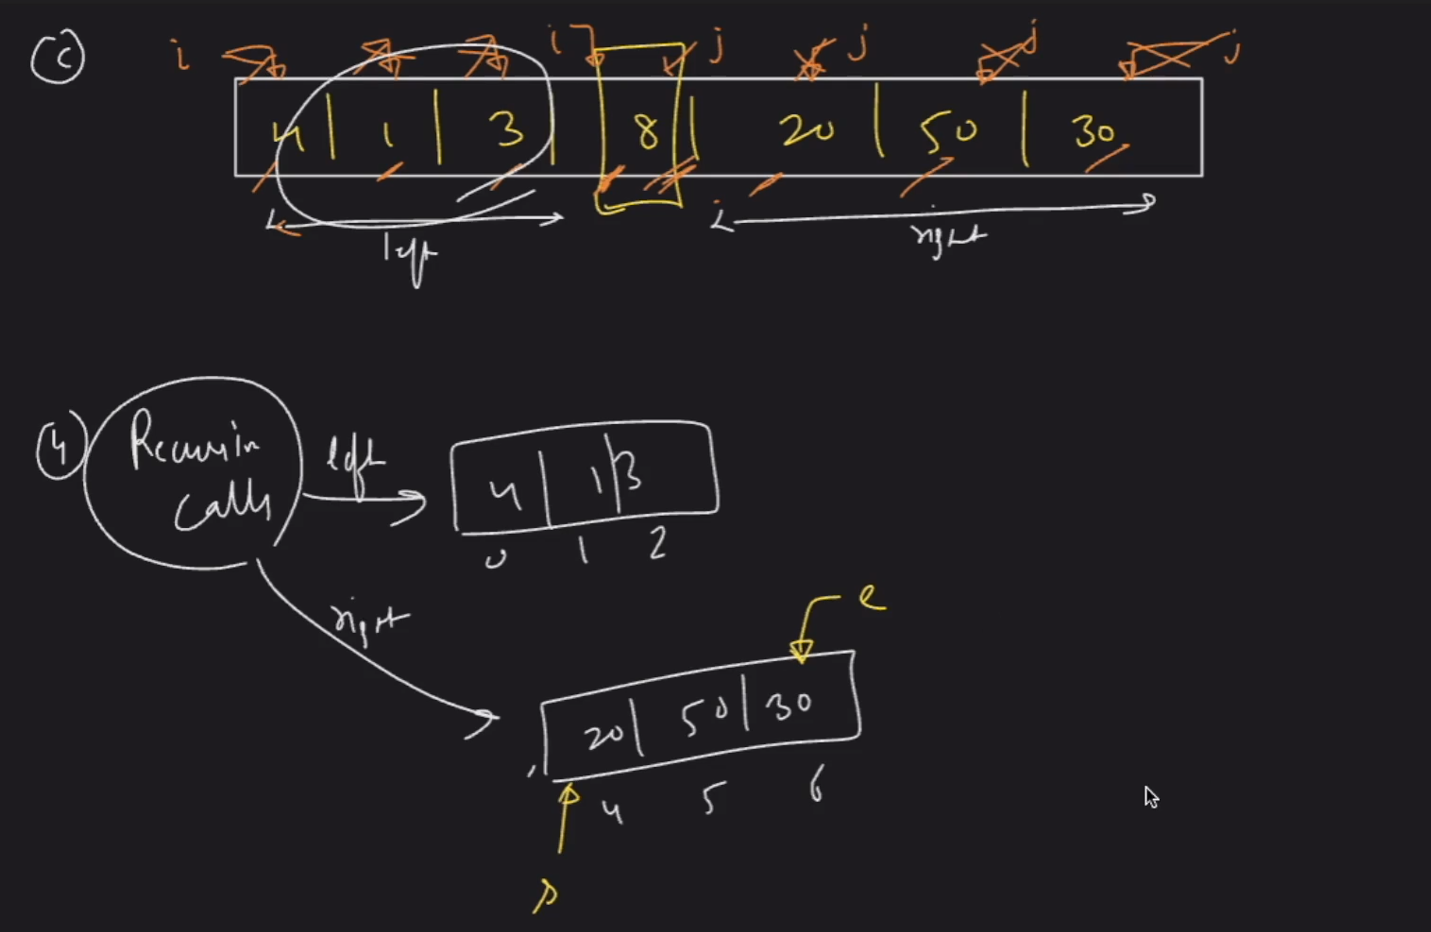 (c) i i j j j j
4 | 1 | 3 | 8 | 20 | 50 | 30
left right
(4) left
calls 4 | 1 | 3
0 1 2
right e
20 | 50 | 30
4 5 6
s